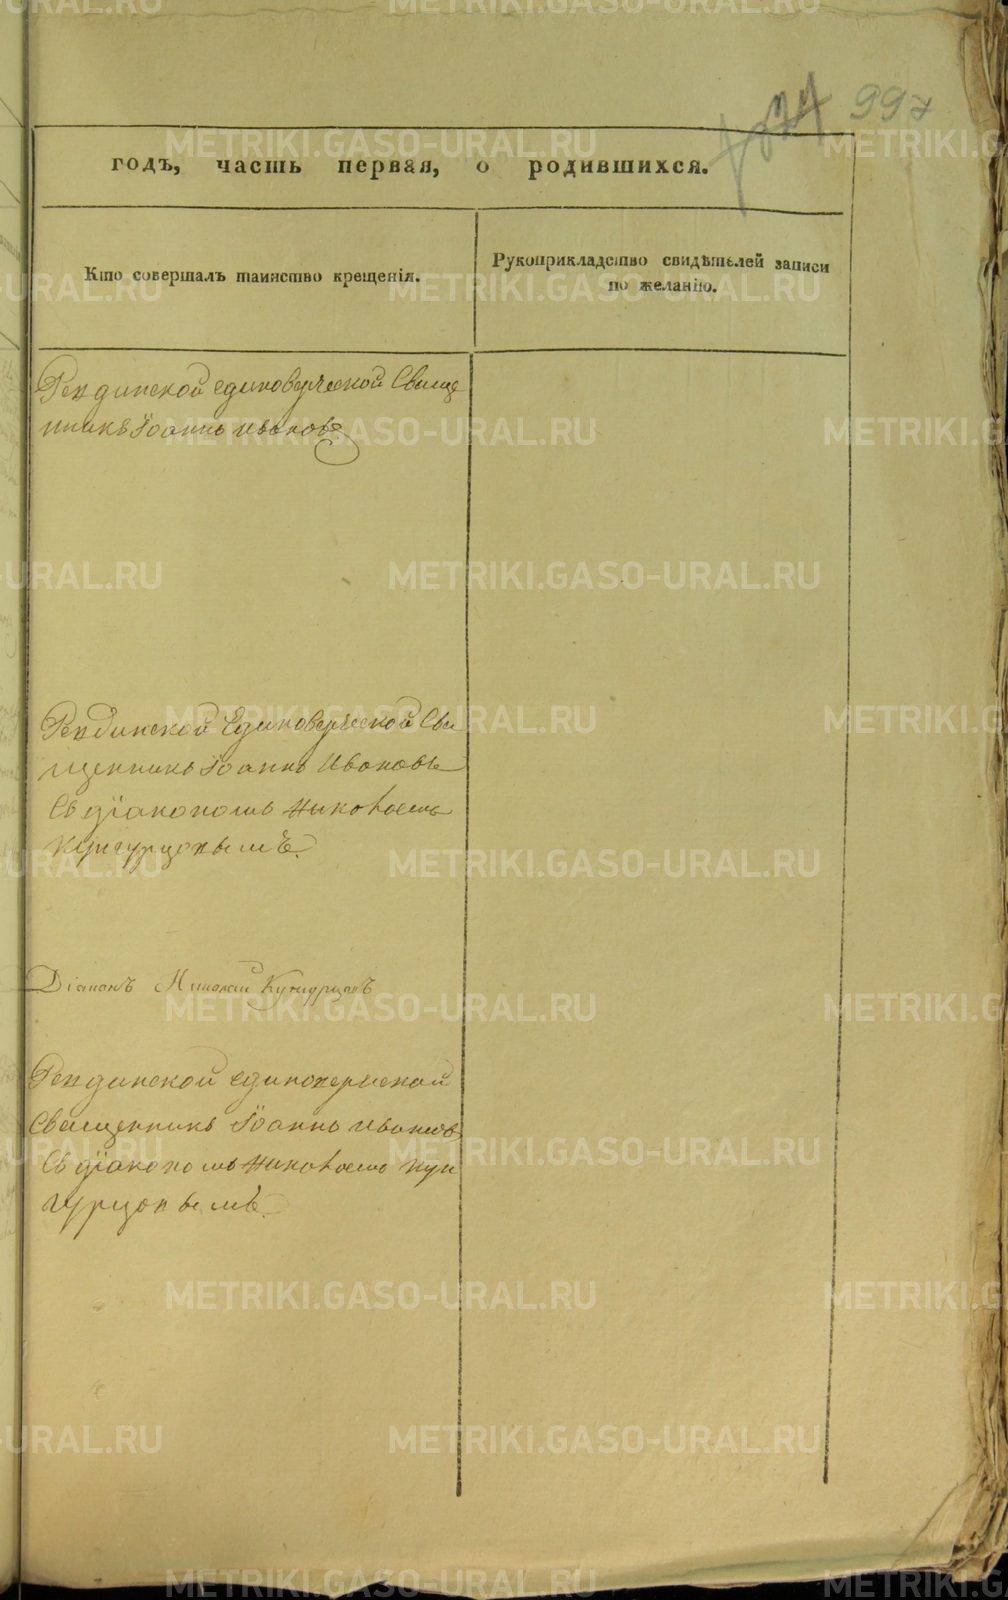 997
годъ, часть первая, о родившихся.
Кто совершалъ таинство крещенія.
Рукоприкладство свидѣтелей записи
по желанію.
единоверческой Свяще
нникъ Іоаннъ Ивановъ
Единоверческой Свя
щенникъ Іоаннъ Ивановъ
Съ діакономъ Николаемъ
Кунгурцовымъ.
Діаконъ Николай Кунгурцовъ
единоверческой
Священникъ Іоаннъ Ивановъ
Съ діакономъ Николаемъ Кун
гурцовымъ.
METRIKI.GASO-URAL.RU